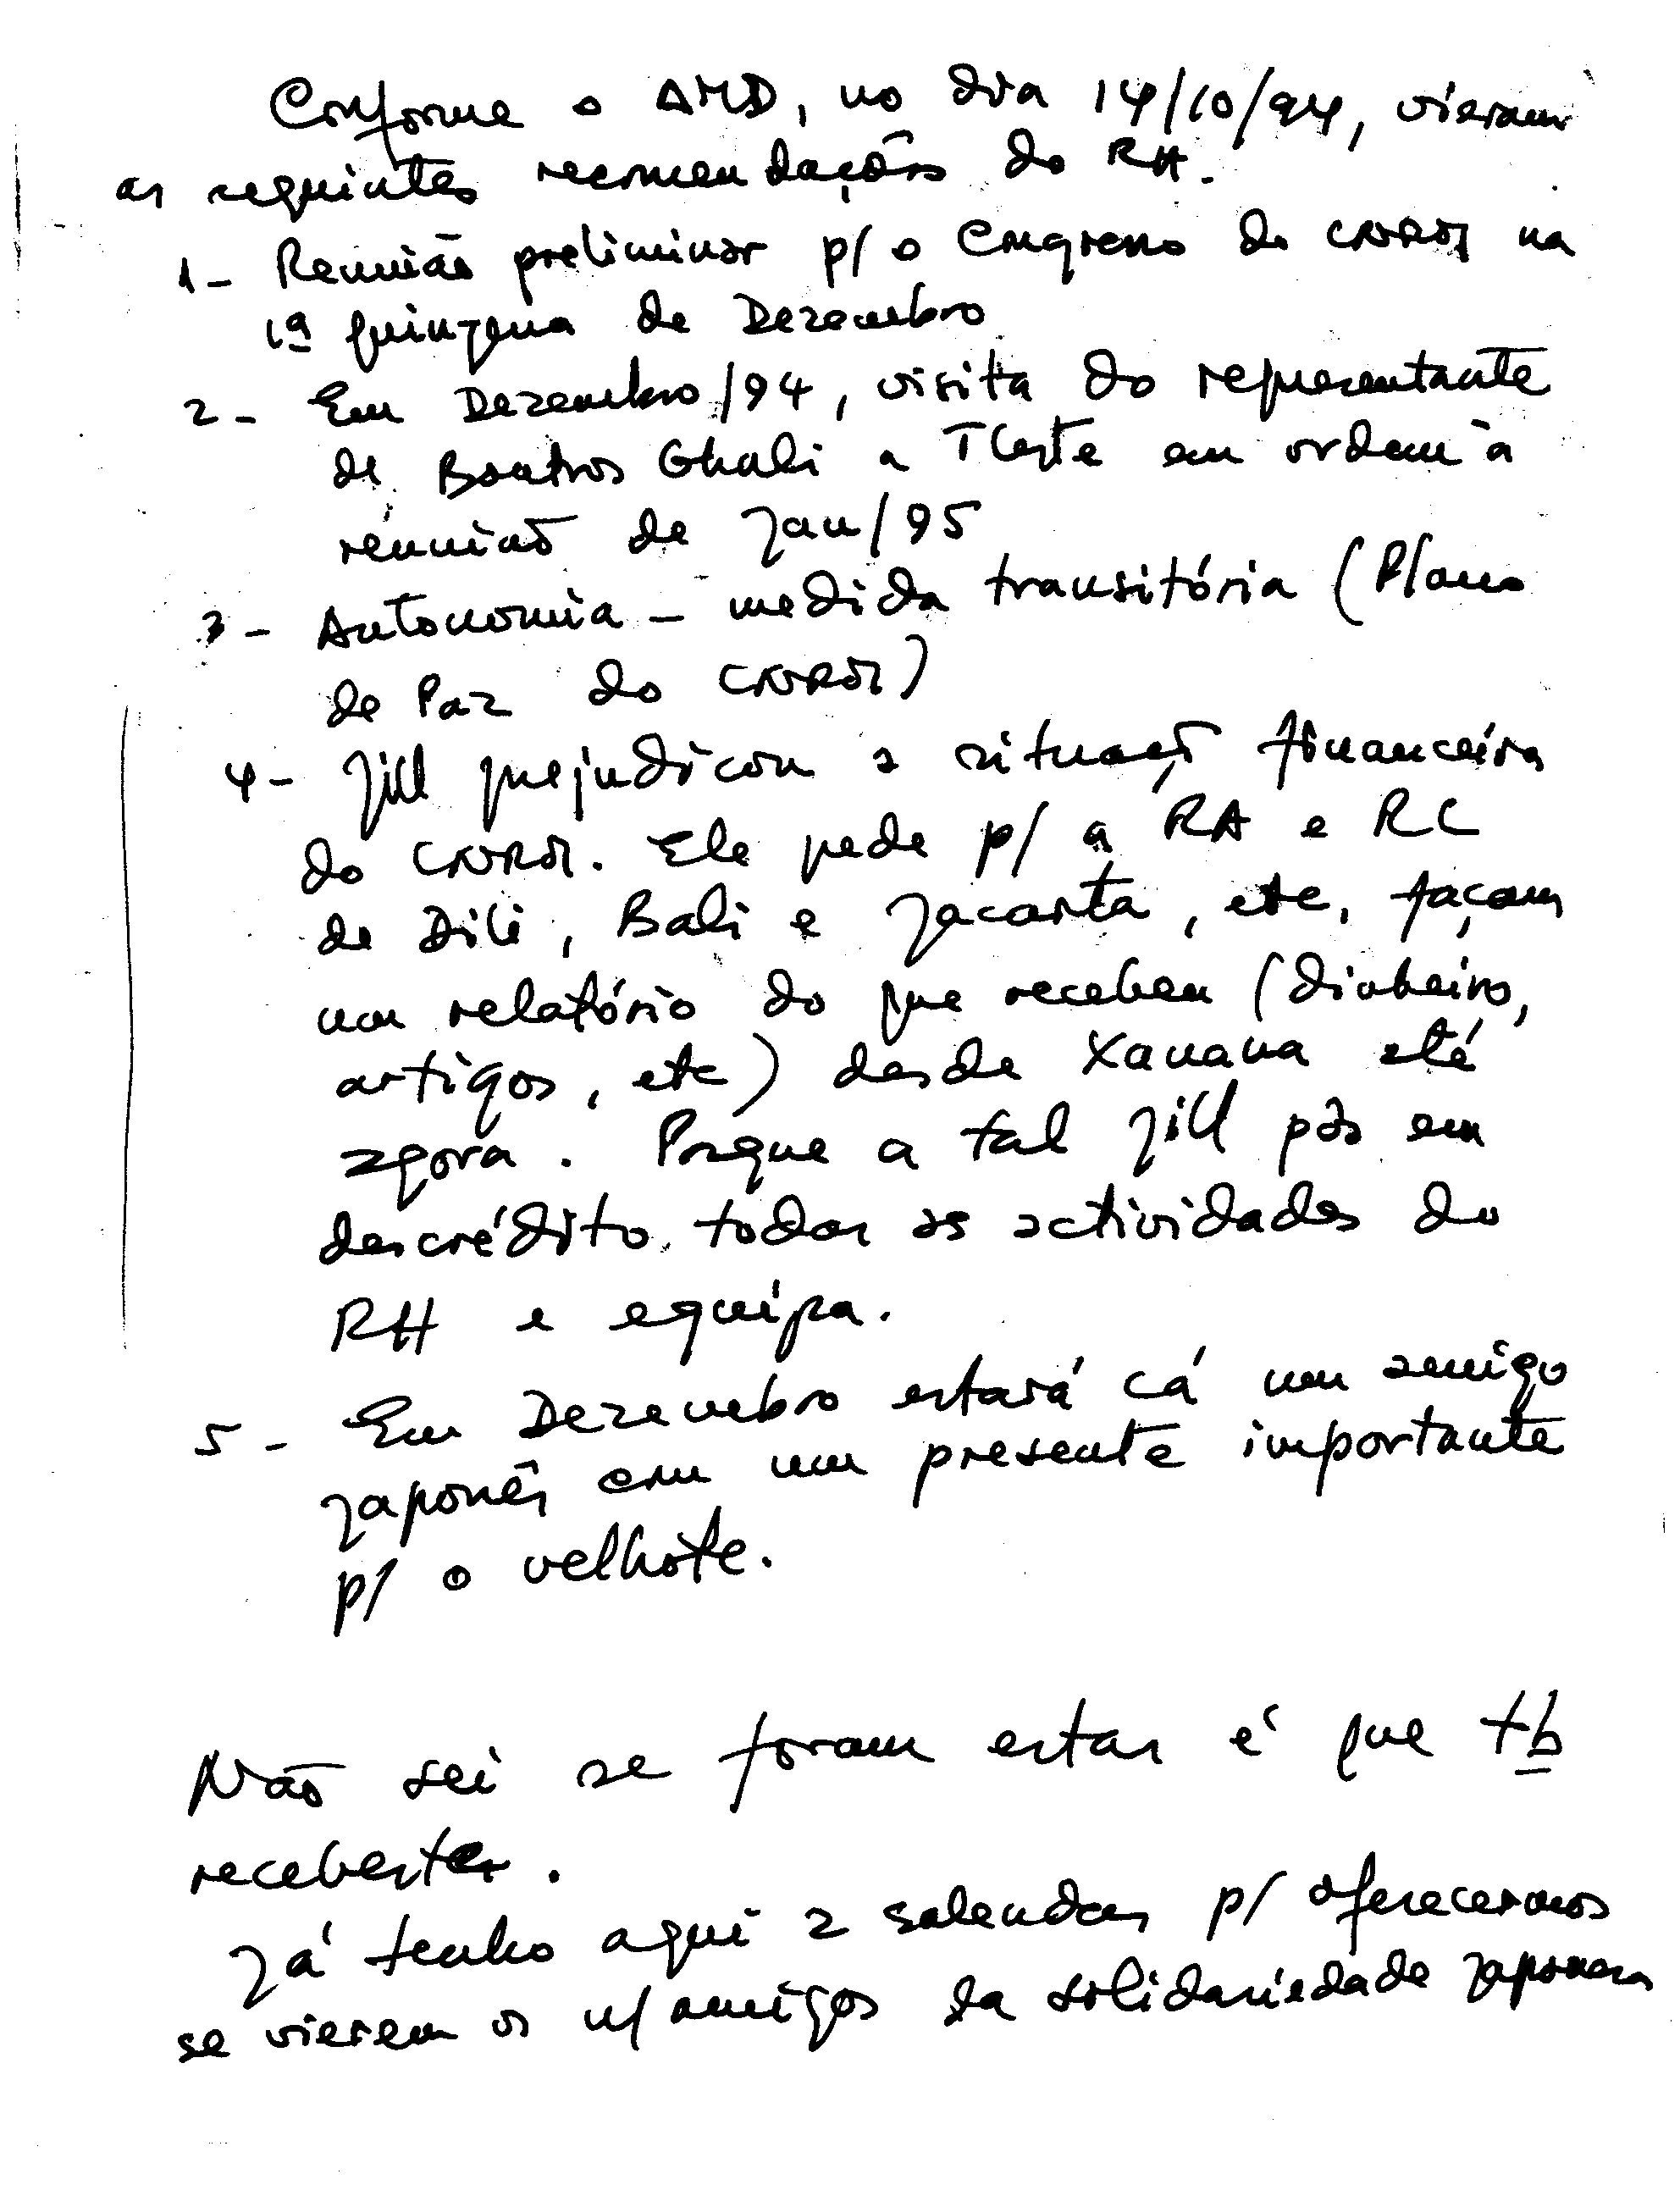 Conforme o AMD, no dia 14/10/94, vieram
as seguintes recomendações do RH.
1- Reunião preliminar p/ o Congresso do CNRM na
1ª quinzena de Dezembro
2- Em Dezembro/94, visita do representante
de Boutros Ghali a TLeste em ordem à
reunião de Jan/95
3- Autonomia - medida transitória (Plano
de Paz do CNRM)
4- Jill prejudicou a situação financeira
do CNRM. Ele pede p/ a RA e RC
de Dili, Bali e Jacarta, etc, façam
um relatório do que recebem (dinheiro,
artigos, etc) desde Xanana até
agora. Porque a tal Jill pôs em
descrédito todas as actividades do
RH e equipa.
5- Em Dezembro estará cá um amigo
japonês com um presente importante
p/ o velhote.
Não sei se foram estas é que tb
recebeste.
Já tenho aqui 2 salendas p/ oferecermos
se vierem os n/ amigos da solidariedade japonesa